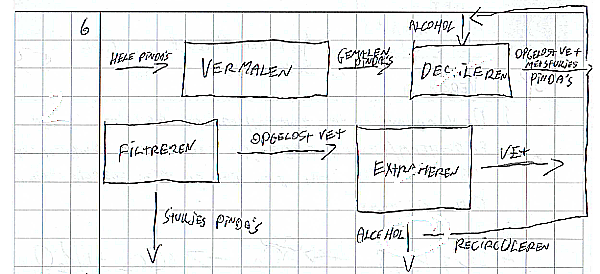 6
ALCOHOL
HELE PINDA'S
VERMALEN
GEMALEN
PINDA'S
DECILEREN
OPGELOST VET
MET STUKJES
PINDA'S
FILTREREN
OPGELOST VET
EXTRAHEREN
VET
STUKJES PINDA'S
ALCEHOL
RECIRCULEREN